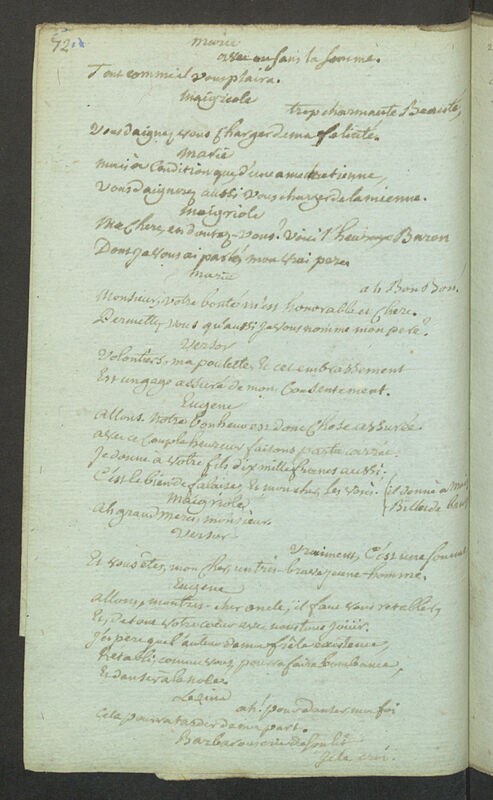 72.
marie
avec ou sans la somme.
Tout comme il vous plaira.
Maigriole
trop charmante Beauté,
Vous daignez vous charger de ma félicité.
Marie
mais à Condition que d'une ame chretienne,
Vous daignerez aussi vous charger de la mienne.
Maigriole
Ma Chere, en doutez-vous? Voici l'heureux Baron
Dont je vous ai parlé, mon vrai pere.
Marie
ah Bon Bon!
Monsieur, Votre bonté m'est honorable et Chere.
Permettez vous qu'aussi je vous nomme mon pere?
Versor
Volontiers, ma poulette, Et cet embrassement
Est un gage assuré de mon Consentement.
Eugene
allons. Notre bonheur est donc Chose assurée.
avec ce Couple heureux faisons partie carrée.
Je donne à votre fils dix mille francs aussi.
C'est le bien de falaise, Et mon cher, les voici. (il donne à
Billets de
Maigriole
ah grand merci monsieur
Versor
Vraiment, C'est une
Et vous êtes, mon Cher, un très-brave jeune-homme.
Eugene
allons, montres-cher oncle, il faut vous rétablir,
Et, de tout votre coeur avec nous tous jouir.
J'espere que l'auteur de ma frêle existence,
Rétabli comme vous, pourra faire bombance,
Et danser à la noce.
ah! pour danser ma foi
Cela pourra tarder de ma part.
je le croi.